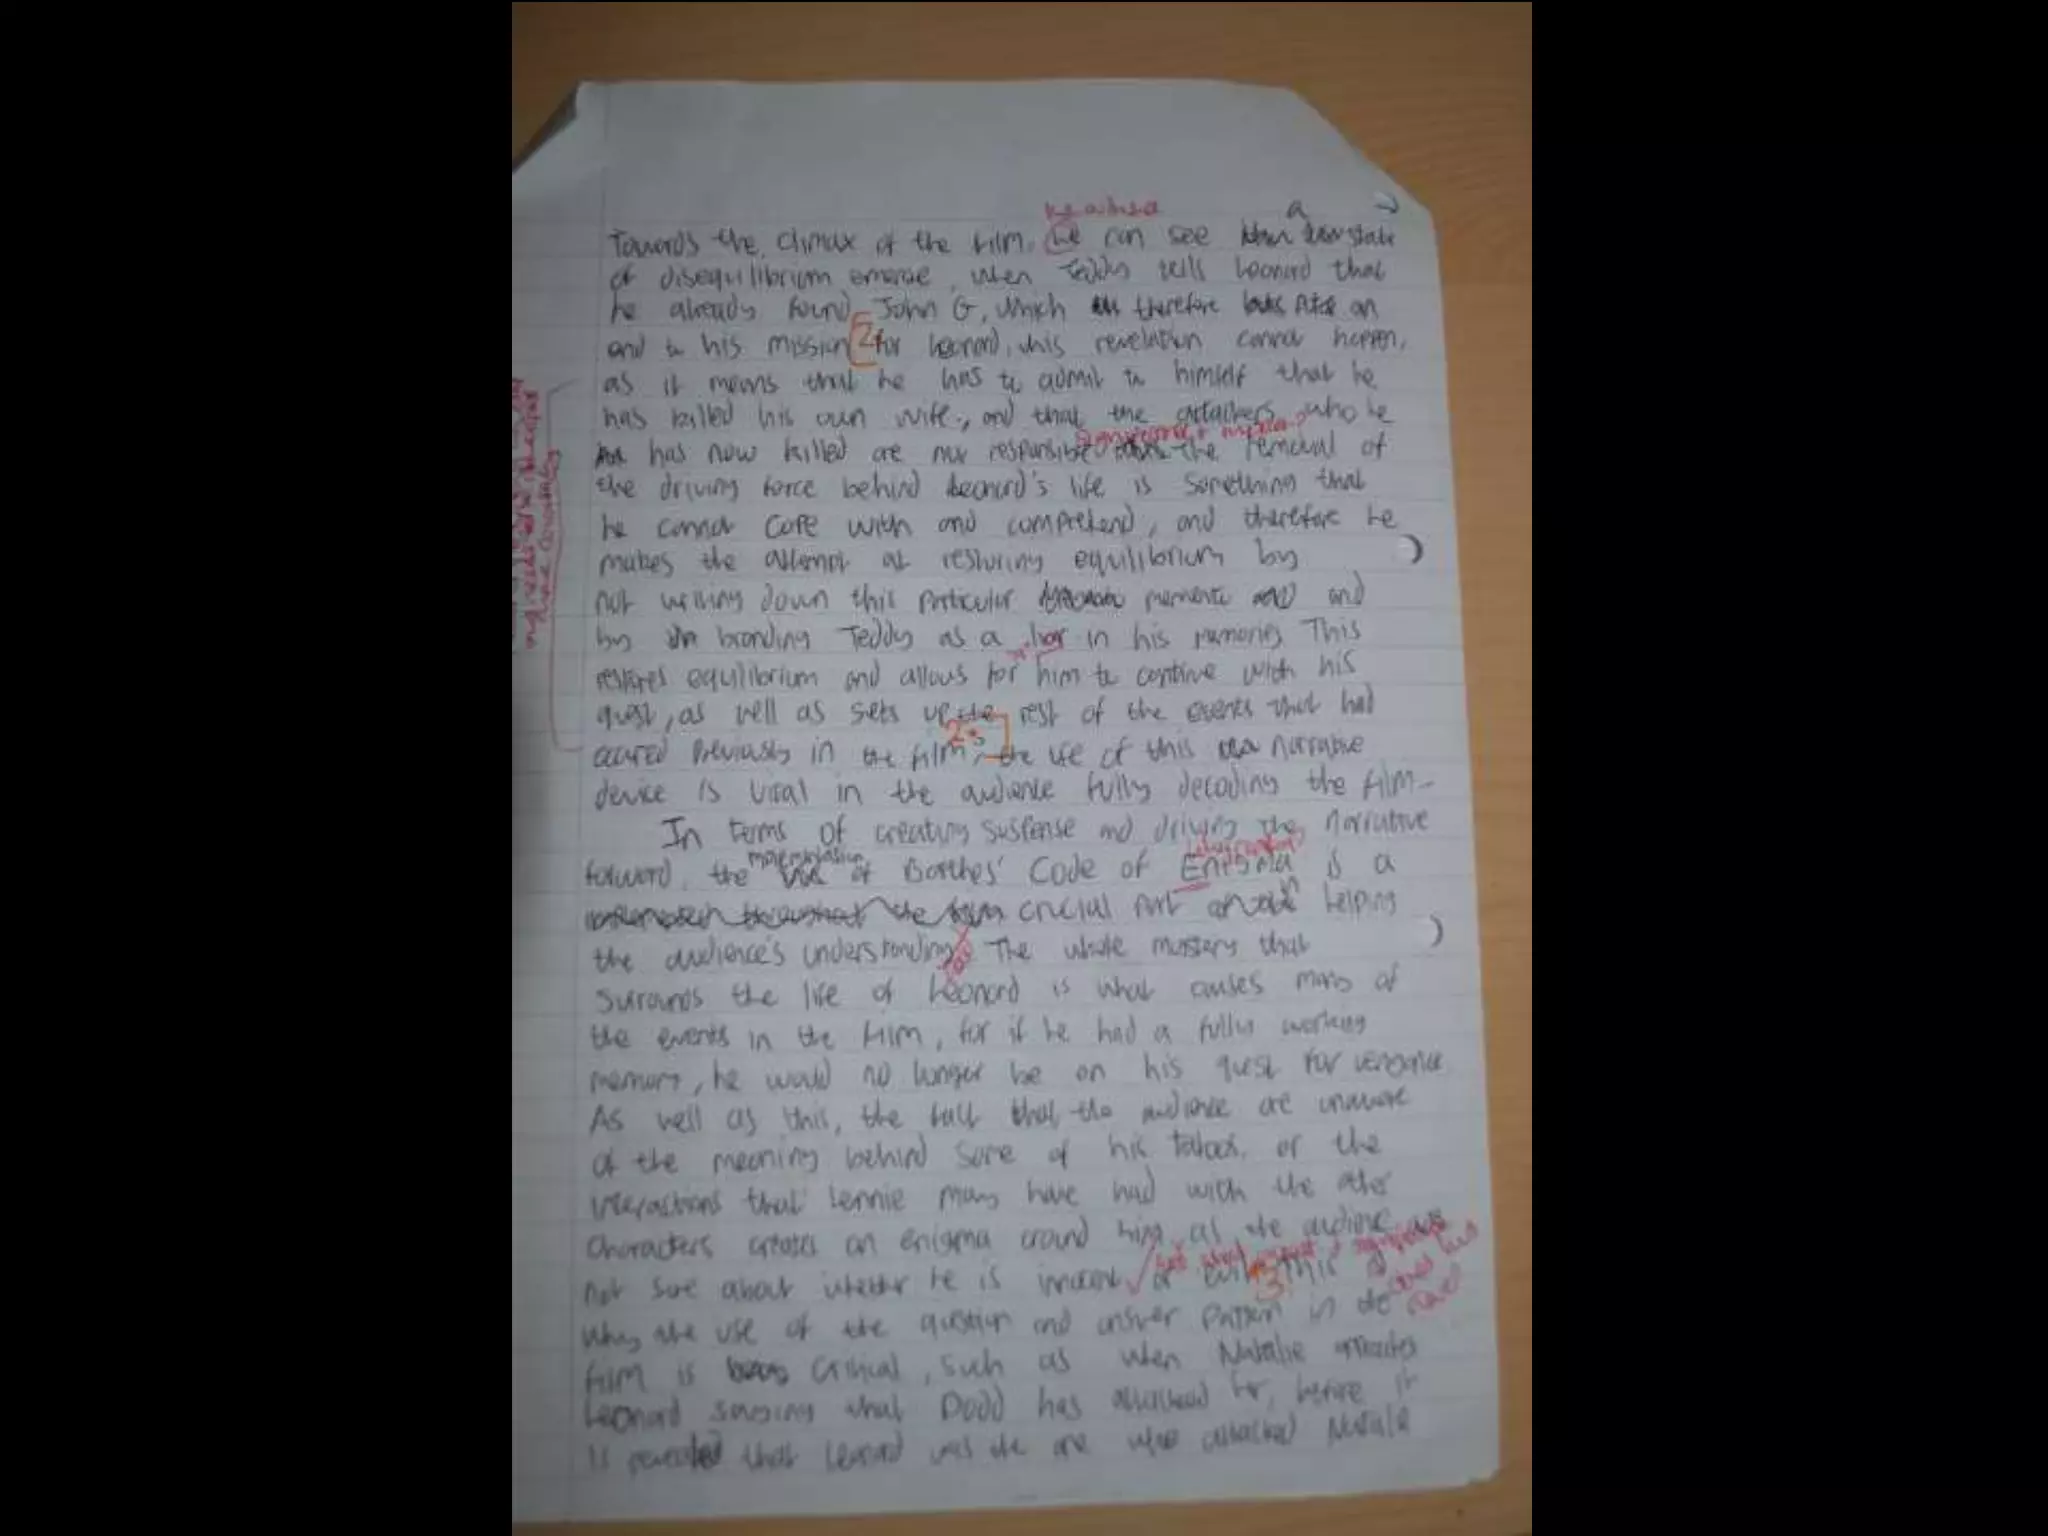 the audience
Towards the climax of the film, we can see a new state
of disequilibrium emerge, when Teddy tells Leonard that
he already found John G, which therefore puts an
end to his mission. 2 for Leonard, this revelation cannot happen,
as it means that he has to admit to himself that he
has killed his own wife, and that the attackers who he
has now killed are not responsible. The removal of
the driving force behind Leonard's life is something that
he cannot cope with and comprehend, and therefore he
makes the attempt at restoring equilibrium by
not writing down this particular memento and
by branding Teddy as a liar in his memory. This
restores equilibrium and allows for him to continue with his
quest, as well as sets up the rest of the events that had
occured previously in the film, 2.5 the use of this narrative
device is vital in the audience fully decoding the film.
In terms of creating suspense and driving the narrative
forward, the of Barthes' Code of Enigma is a
crucial part in helping
the audience's understanding. The whole mystery that
surrounds the life of Leonard is what causes many of
the events in the film, for if he had a fully working
memory, he would no longer be on his quest for vengance
As well as this, the fact that the audience are unaware
of the meaning behind some of his tattoos, or the
interactions that Lennie may have had with the other
characters creates an enigma around him, as the audience are
not sure about whether he is innocent or evil. 3 This is
why the use of the question and answer pattern in the
film is critical, such as when Natalie
Leonard saying that Dodd has attacked her, before it
is revealed that Leonard was the one who attacked Natalie